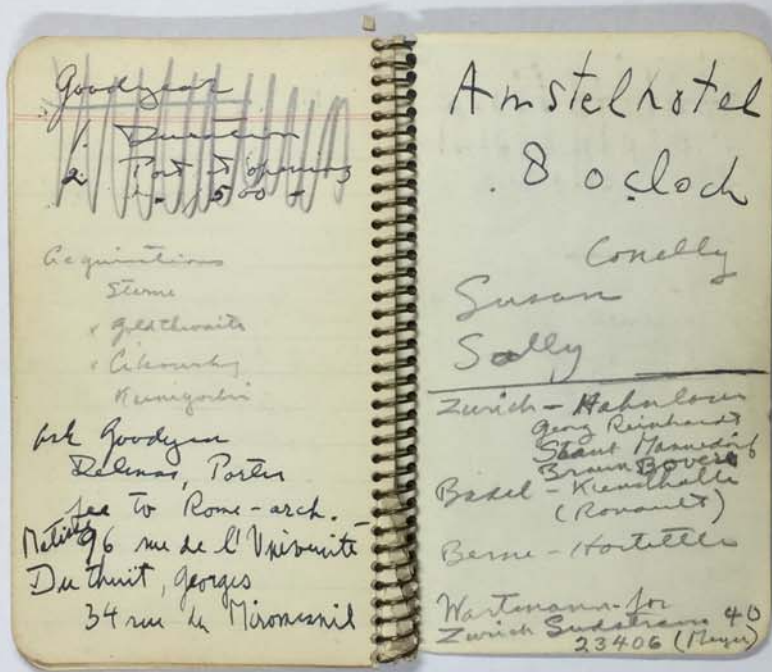 Goodyear
1. Duration
2. Post opening
500
Acquisitions
Sterne
x Goldthwaite
x Cikovsky
Kuniyoshi
Ask Goodyear
Delmas, Porter
fee to Rome - arch.
Matisse 96 rue de l'Université
Duthuit, Georges
34 rue du Miromesnil
Amstelhotel
8 oclock
Conelly
Susan
Sally
Zurich - Hahnloser
Georg Reinhardt
Staut Mannedorf
Braun Boveri
Basel - Kunsthalle
(Rouault)
Berne - Hostettler
Wartmann - for
Zurich Sudstrasse 40
23406 (Meyer)